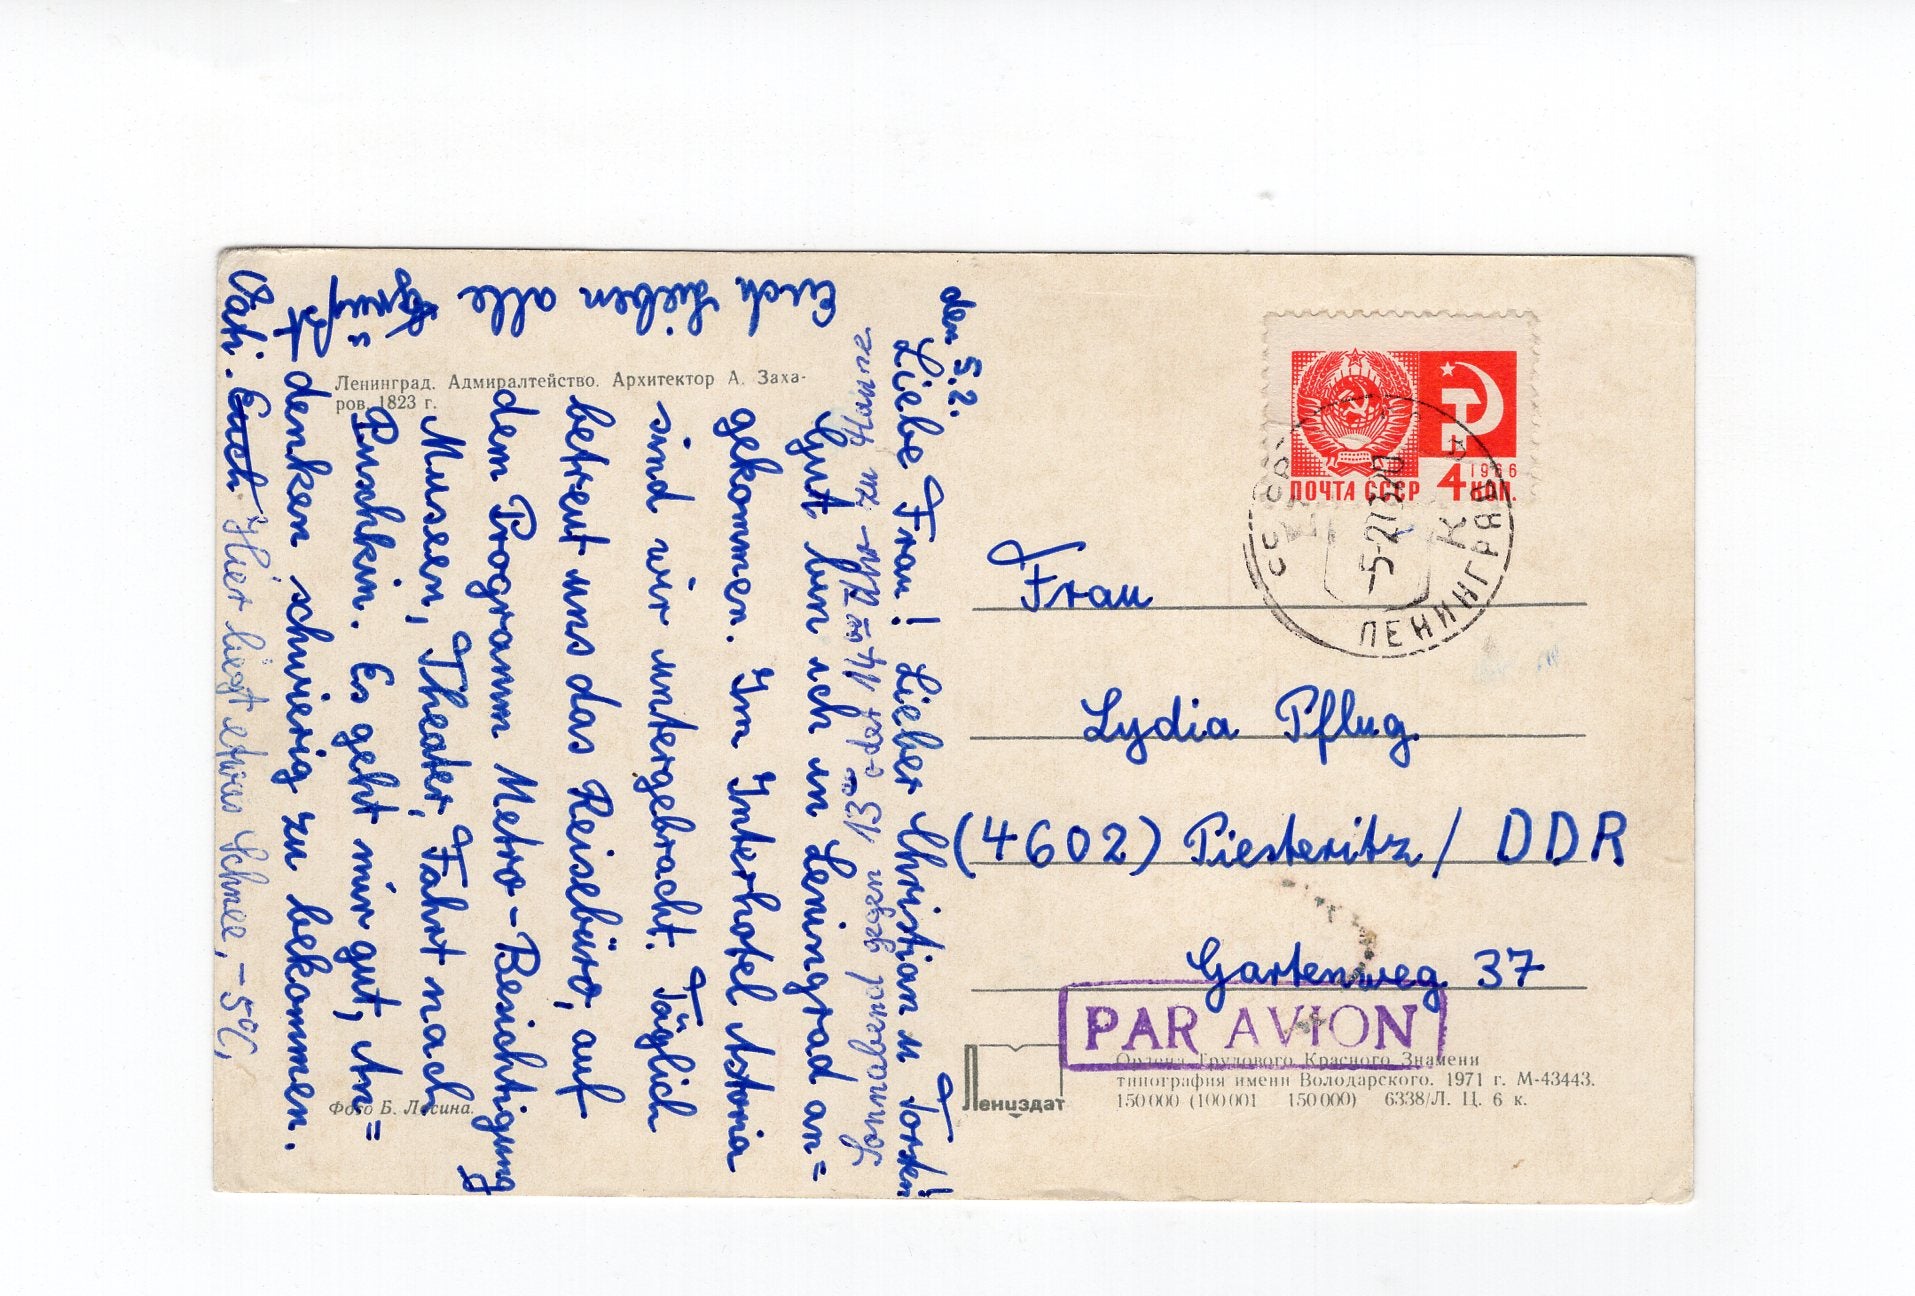 den 5.2.
Liebe Frau! Lieber Christian u Torsten!
Gut bin ich in Leningrad an=
gekommen. Im Interhotel Astoria
sind wir untergebracht. Täglich
betreut uns das Reisebüro, auf
dem Programm Metro-Besichtigung
Museen, Theater, Fahrt nach
Puschkin. Es geht mir gut, An=
denken schwierig zu bekommen.
Euch Lieben alle
grüßt
Vati. Euch Hier liegt etwas Schnee, -5°C,
Sonnabend gegen 13°° oder 14°° Uhr zu Hause
Ленинград. Адмиралтейство. Архитектор А. Заха-
ров. 1823 г.
Фото Б. Лосина.
ПОЧТА СССР
1966
4 КОП.
СССР
-5-2
ЛЕНИНГРАД
Frau
Lydia Pflug.
(4602) Piesteritz / DDR
Gartenweg 37
PAR AVION
Лениздат
Ордена Трудового Красного Знамени
типография имени Володарского. 1971 г. М-43443.
150 000 (100 001 150 000) 6338/Л. Ц. 6 к.